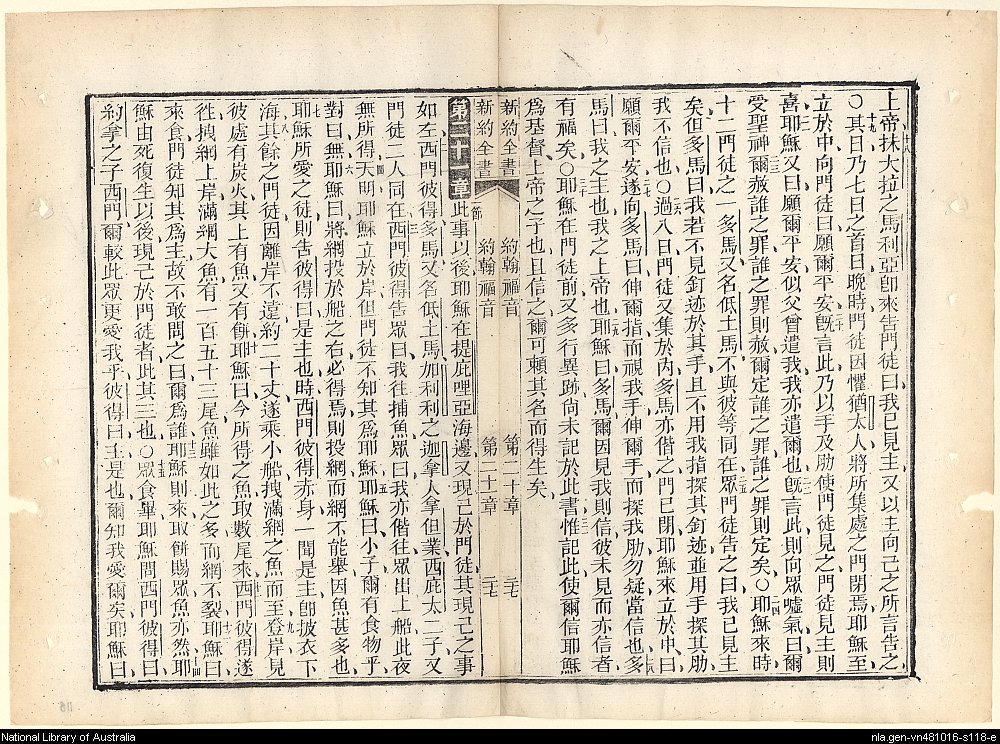 上帝抹大拉之馬利亞卽來吿門徒曰我已見主又以主向己之所言吿之
○其日乃七日之首日晚時門徒因懼猶太人將所集處之門閉焉耶穌至
立於中向門徒曰願爾平安旣言此乃以手及肋使門徒見之門徒見主則
喜耶穌又曰願爾平安似父曾遣我我亦遣爾也旣言此則向眾噓氣曰爾
受聖神爾赦誰之罪誰之罪則赦爾定誰之罪誰之罪則定矣○耶穌來時
十二門徒之一多馬又名低土馬不與彼等同在眾門徒吿之曰我已見主
矣但多馬曰我若不見釘迹於其手且不用我指探其釘迹並用手探其肋
我不信也○過八日門徒又集於內多馬亦偕之門已閉耶穌來立於中曰
願爾平安遂向多馬曰伸爾指而視我手伸爾手而探我肋勿疑當信也多
馬曰我之主也我之上帝也耶穌曰多馬爾因見我則信彼未見而亦信者
有福矣○耶穌在門徒前又多行異跡尙未記於此書惟記此使爾信耶穌
爲基督上帝之子也且信之爾可賴其名而得生矣
新約全書 約翰福音 第二十章 二七
新約全書 約翰福音 第二十一章 二七
第二十一章 此事以後耶穌在提庇哩亞海邊又現己於門徒其現己之事
如左西門彼得多馬又名低土馬加利利之迦拿人拿但業西庇太二子又
門徒二人同在西門彼得吿眾曰我往捕魚眾曰我亦偕往眾出上船此夜
無所得天明耶穌立於岸但門徒不知其爲耶穌耶穌曰小子爾有食物乎
對曰無耶穌曰將網投於船之右必得焉則投網而網不能舉因魚甚多也
耶穌所愛之徒則吿彼得曰是主也時西門彼得赤身一聞是主卽披衣下
海其餘之門徒因離岸不遠約二十丈遂乘小船拽滿網之魚而至登岸見
彼處有炭火其上有魚又有餅耶穌曰今所得之魚取數尾來西門彼得遂
徃拽網上岸滿網大魚有一百五十三尾魚雖如此之多而網不裂耶穌曰
來食門徒知其爲主故不敢問之曰爾爲誰耶穌則來取餅賜眾魚亦然耶
穌由死復生以後現己於門徒者此其三也○眾食畢耶穌問西門彼得曰
約拿之子西門爾較此眾更愛我乎彼得曰主是也爾知我愛爾矣耶穌曰
National Library of Australia
nla.gen-vn481016-s118-e